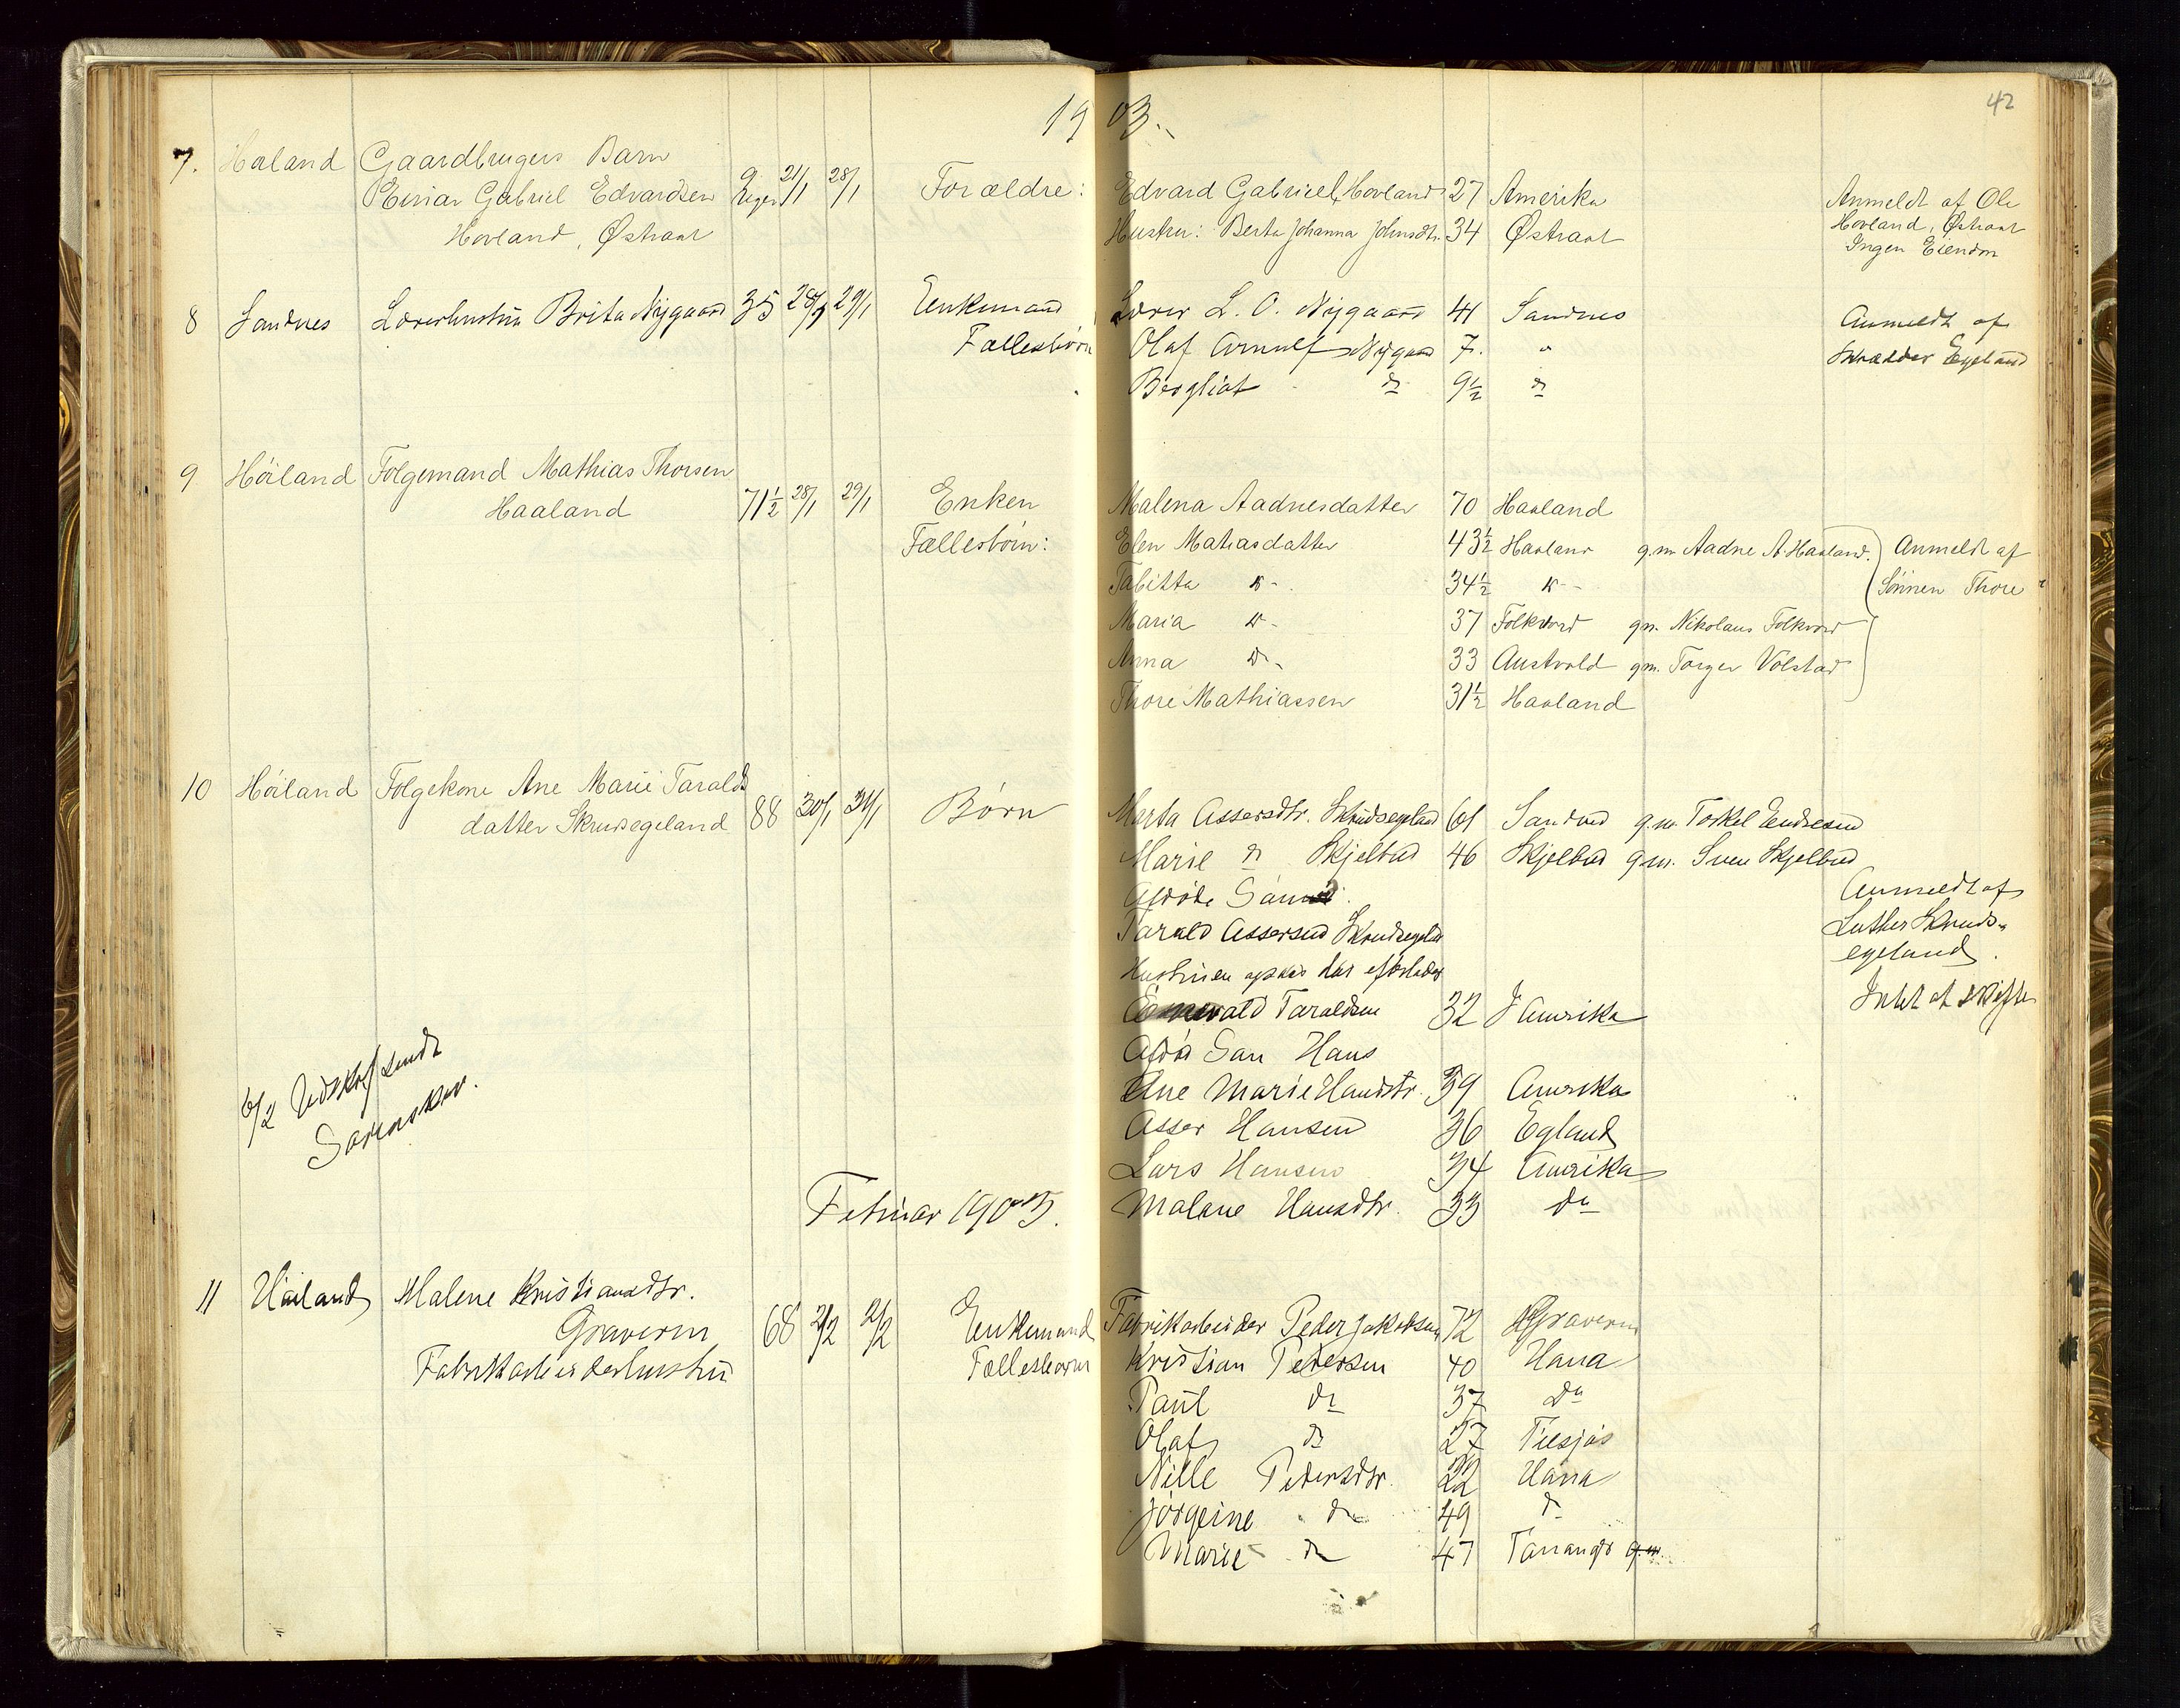 19 03.
42
7. Høland Gaardbrugers Barn
Einar Gabriel Edvardsen 9 Uger 21/1 28/1 Forældre: Edvard Gabriel Hovland 27 Amerika Anmeldt af Ole
Hovland, Østraat Hustru: Berta Johanna Johnsdtr. 34 Østraat Hovland, Østraat
Ingen Eiendom
8 Sandnes Lærerhustru Brita Nygaard 35 28/1 29/1 Enkemand Lærer L. O. Nygaard 41 Sandnes Anmeldt af
Fællesbørn Olaf Arnulf Nygaard 7. " Skrædder Egeland
Bergliot do 9½ do
9 Höiland Folgemand Mathias Thorsen
Haaland 71½ 28/1 29/1 Enken Malena Aadnesdatter 70 Haaland
Fællesbörn: Elen Matiasdatter 43½ Haaland g.m. Aadne A. Haaland. Anmeldt af
Tabitta do 34½ do Sönnen Thore
Maria do 37 Folkvord gm. Nikolaus Folkvord
Anna do 33 Austvold gm. Torger Volstad
Thore Mathiassen 31½ Haaland
10 Höiland Folgekone Ane Marie Taralds
datter Skrudsegeland 88 30/1 31/1 Børn Marta Assersdtr. Skrudsegeland 61 Sandved g.m. Torkel Endresen
Marie do Skjelbred 46 Skjelbred gm. Sven Skjelbred
Afdöde Sönn Anmeldt af
Tarald Assersen Skrudsegeland Luther Skruds-
Hustruen egeland.
Taraldsen 32 I Amerika Intet at skifte
Afdöd Søn Hans
Ane Marie Hansdtr. 39 Amerika
6/2 Udskrift sendt Asser Hansen 36 Egland
Sorenskr. Lars Hansen 34 Amerika
Februar 1903. Malene Hansdtr. 33 do
11 Höiland Malene Kristiansdtr.
Graveren 68 2/2 2/2 Enkemand Fabrikarbeider Peder Jakobsen 72 Graveren
Fabrikarbeiderhustru Fællesbørn Kristian Pedersen 40 Hana
Paul do 37 do
Olaf do 27
Nille Pedersdtr. 22 Hana
Jörgine do 49 do
Marie do 47 g.m.